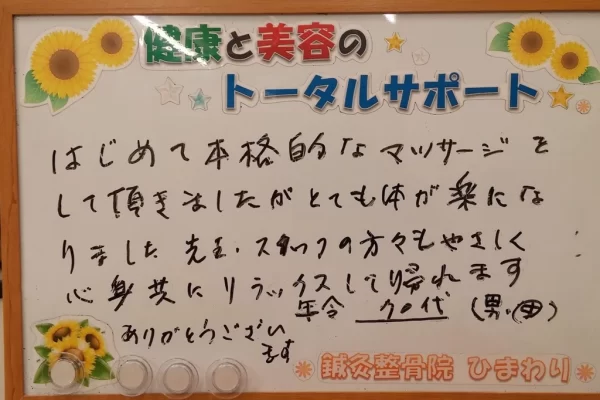 健康と美容の
トータルサポート
はじめて本格的なマッサージを
して頂きましたがとても体が楽にな
りました 先生、スタッフの方々もやさしく
心身共にリラックスして帰れます
年令 70代 (男・女)
ありがとうござい
ます
鍼灸整骨院 ひまわり